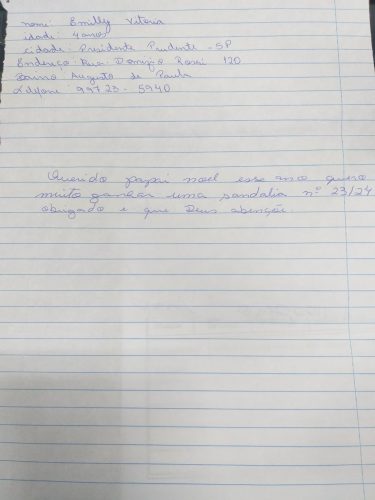 nome: Emilly Vitoria
idade: 4 anos
cidade: Presidente Prudente - SP
Endereço: Rua: Domingo Rossi 120
Bairro Augusto de Paula
telefone: 99723-5940
Querido papai noel esse ano quero
muito ganhar uma sandalia nº 23/24
obrigado e que Deus abençõe.